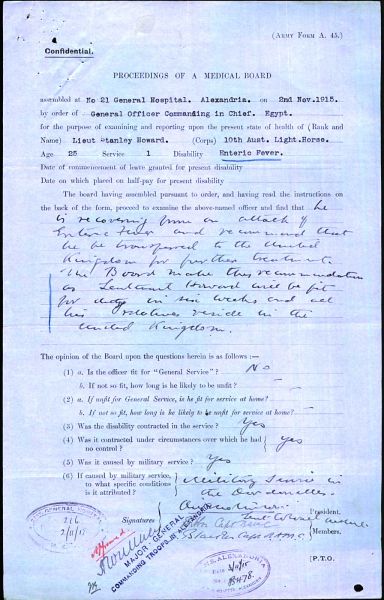 (ARMY FORM A. 45.)
Confidential.
PROCEEDINGS OF A MEDICAL BOARD
assembled at No 21 General Hospital. Alexandria. on 2nd Nov. 1915.
by order of General Officer Commanding in Chief. Egypt.
for the purpose of examining and reporting upon the present state of health of (Rank and
Name) Lieut Stanley Howard. (Corps) 10th Aust. Light.Horse.
Age 25 Service 1 Disability Enteric Fever.
Date of commencement of leave granted for present disability
Date on which placed on half-pay for present disability
The board having assembled pursuant to order, and having read the instructions on
the back of the form, proceed to examine the above-named officer and find that he
is recovering from an attack of
Enteric Fever and recommend that
he be transferred to the United
Kingdom for further treatment.
The Board make this recommendation
as Lieutenant Howard will be fit
for duty in six weeks and all
his relatives reside in the
United Kingdom.
The opinion of the Board upon the questions herein is as follows :—
(1) a. Is the officer fit for "General Service"? No
b. If not so fit, how long is he likely to be unfit?
(2) a. If unfit for General Service, is he fit for service at home?
b. If not so fit, how long is he likely to be unfit for service at home?
(3) Was the disability contracted in the service? Yes
(4) Was it contracted under circumstances over which he had no control? yes
(5) Was it caused by military service? Yes
(6) If caused by military service, to what specific conditions is it attributed? Military Service in the Dardanelles.
Signatures
President.
Members.
2/11/15
Approved
MAJOR GENERAL
COMMANDING TROOPS IN ALEXANDRIA
ALEXANDRIA
[P.T.O.